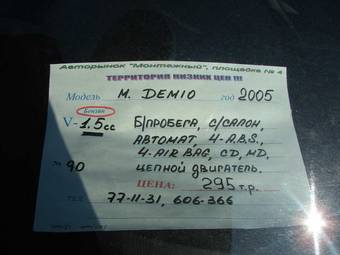 Авторынок "Монтажный", площадка № 4
ТЕРРИТОРИЯ НИЗКИХ ЦЕН !!!
Модель M. DEMIO год 2005
Бензин
V- 1.5 cc Б/ПРОБЕГА, С/САЛОН,
АВТОМАТ, 4-A.B.S.,
№ 90 4-AIR BAG, CD, MD,
ЦЕПНОЙ ДВИГАТЕЛЬ.
ЦЕНА: 295 т.р.
ТЕЛ. 77-11-31, 606-366